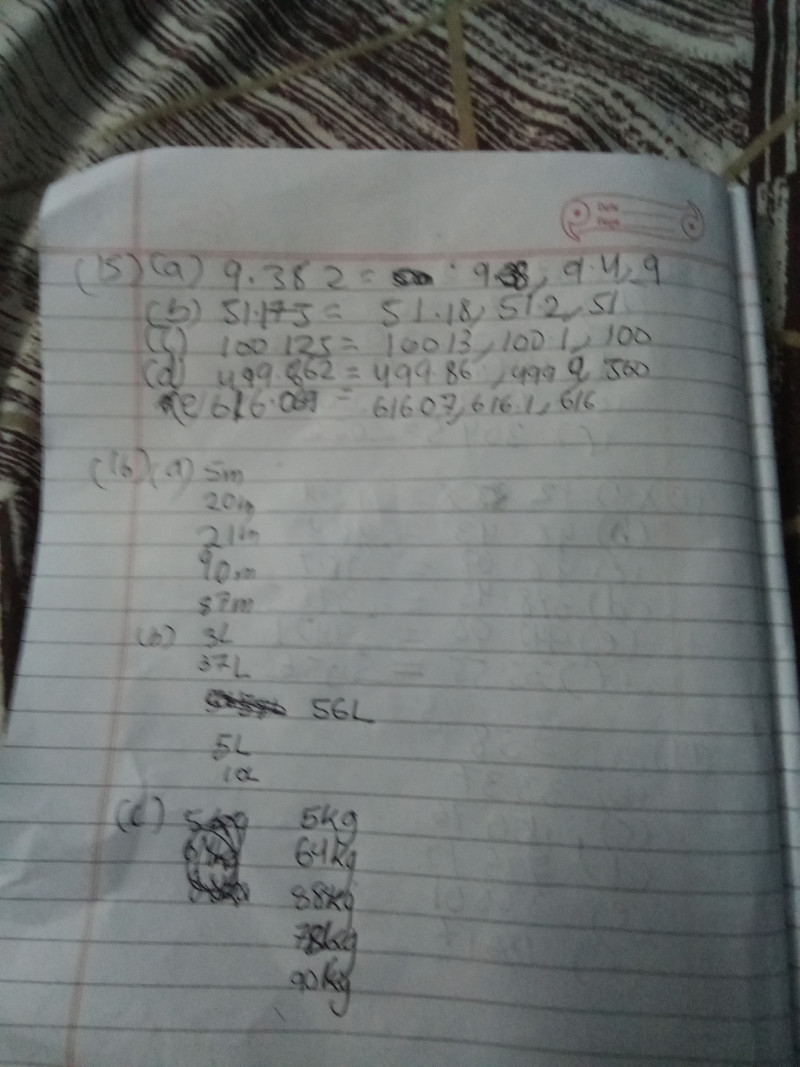 Date
Page
(15) (a) 9.382 = 9.38, 9.4, 9
(b) 51.175 = 51.18, 51.2, 51
(c) 100.125 = 100.13, 100.1, 100
(d) 499.862 = 499.86, 499.9, 500
(e) 616.069 = 616.07, 616.1, 616
(16) (a) 5m
20m
21m
90m
87m
(b) 3L
37L
56L
5L
(c) 5kg
64kg
88kg
78kg
90kg